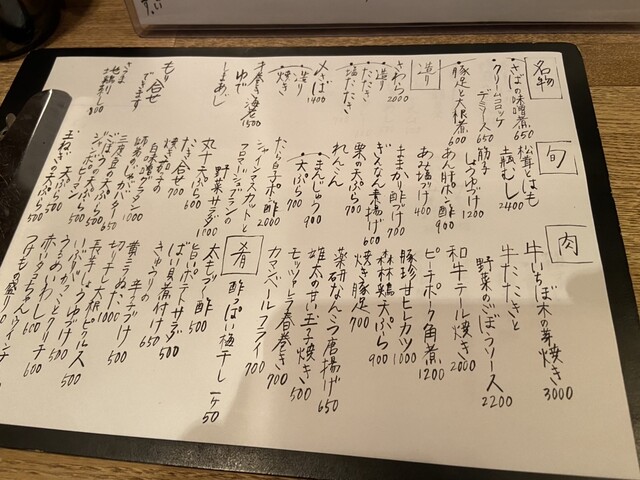 名物
・さばの味噌煮 650
・クリームコロッケ
デミソース 650
・豚足と大根煮 600
造り
さわら 2000
造り
たたき
塩たたき
〆さば 1400
造り
焼き
手巻き海老 1500
ゆで
しまあじ
もり合せ
できます
旬
松茸とはも
土瓶むし 2400
筋子
しょうゆづけ 1200
あん肝ポン酢 900
あみ塩づけ 400
ままかり酢づけ 700
ぎんなん素揚げ 600
栗の天ぷら 700
れんこん
まんじゅう 900
天ぷら 700
たら白子ポン酢 2000
シャインマスカットと
フロマージュブランの
野菜サラダ 1000
丸十天ぷら 600
たき合せ 700
焼き茄子の
白味噌グラタン 1000
三度豆のかき揚げ
ごぼうの天ぷら 500
ジャンボピーマン
天ぷら 500
玉ねぎ天ぷら 500
肉
牛いちぼ木の芽焼き 3000
牛たたきと
野菜のごぼうソース 2200
和牛テール焼き 2000
ピーチポーク角煮 1200
豚珍甘ヒレカツ 1000
森林鶏天ぷら 900
焼き豚足 700
薬研なんこつ唐揚げ 650
雄太の甘い玉子焼き 500
モッツァレラ春巻き 700
カマンベールフライ 700
肴
酸っぱい梅干し 一ヶ50
太もづく酢 500
旨いポテトサラダ 500
ばい貝煮付け 650
きゅうりの
辛子づけ 500
黄ニラぬた 1000
切り干し大根
長芋しょうゆピクルス 500
いぶりがっことクリチ 500
うるめいわし 600
赤いタコちゃんウインナー 600
つけもの盛り 600